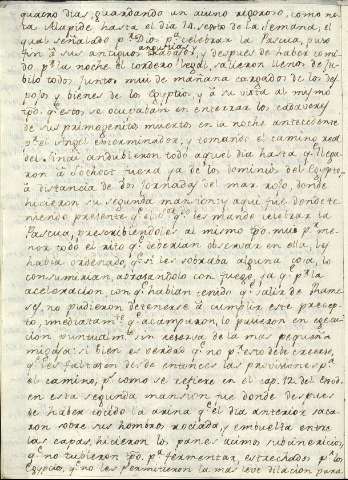 quatro dia, guardando un ayuno rigoroso, como no-
ta Alapide hasta el dia 14. sexto de la semana, el
qual señalado pª celebrar la Pascua, pusie
fin á sus antiguos trabajos, angustias y despues de haber comi-
do pª la noche el cordero legal, salieron llenos de ju-
bilo todos juntos mui de mañana cargados de los des-
pojos y bienes de los Egypcios y á su vista al mismo
tpõ. qe estos, se ocupaban en enterrar los cadaveres
de sus primogenitos muertos en la noche antecedente
pr el Angel exterminador, y tomando el camino real
del Sinai anduvieron todo aquel dia hasta qe llega-
ron á Sochoth fuera ya de los dominios del Egypto
á distancia de dos jornadas del mar roxo, donde
hicieron su segunda mansion; y aqui fue donde te-
niendo presente qe el Sor les mandó celebrar la
Pascua, prescribiendoles al mismo tpõ. mui pr me-
nor todo el rito qe deberian observar en ella, y
habia ordenado, qe si les sobraba alguna cosa, lo
consumieran, abrasandolo con fuego, ya qe pr la
aceleracion con qe habian tenido qe salir de Rame-
ses, no pudieron detenerse á cumplir este precep-
to, inmediatamte qe acamparon, lo pusieron en egecu-
cion puntualmte sin reserva de la mas pequeña
migaja: si bien es verdad qe no pr esto debe creerse,
qe les faltaron desde entonces las provisiones pª
el camino, pr como se refiere en el cap. 12. del Exod.
en esta segunda mansion fue donde despues
de haber cocido la arina qe el dia anterior saca-
ron sobre sus hombros rociada, y embuelta entre
las capas, hicieron los panes acimos subcinericios,
qe no tubieron tpõ. pª fermentar, estrechados pr los
Egypcios, qe no les permitieron la mas leve dilacion para